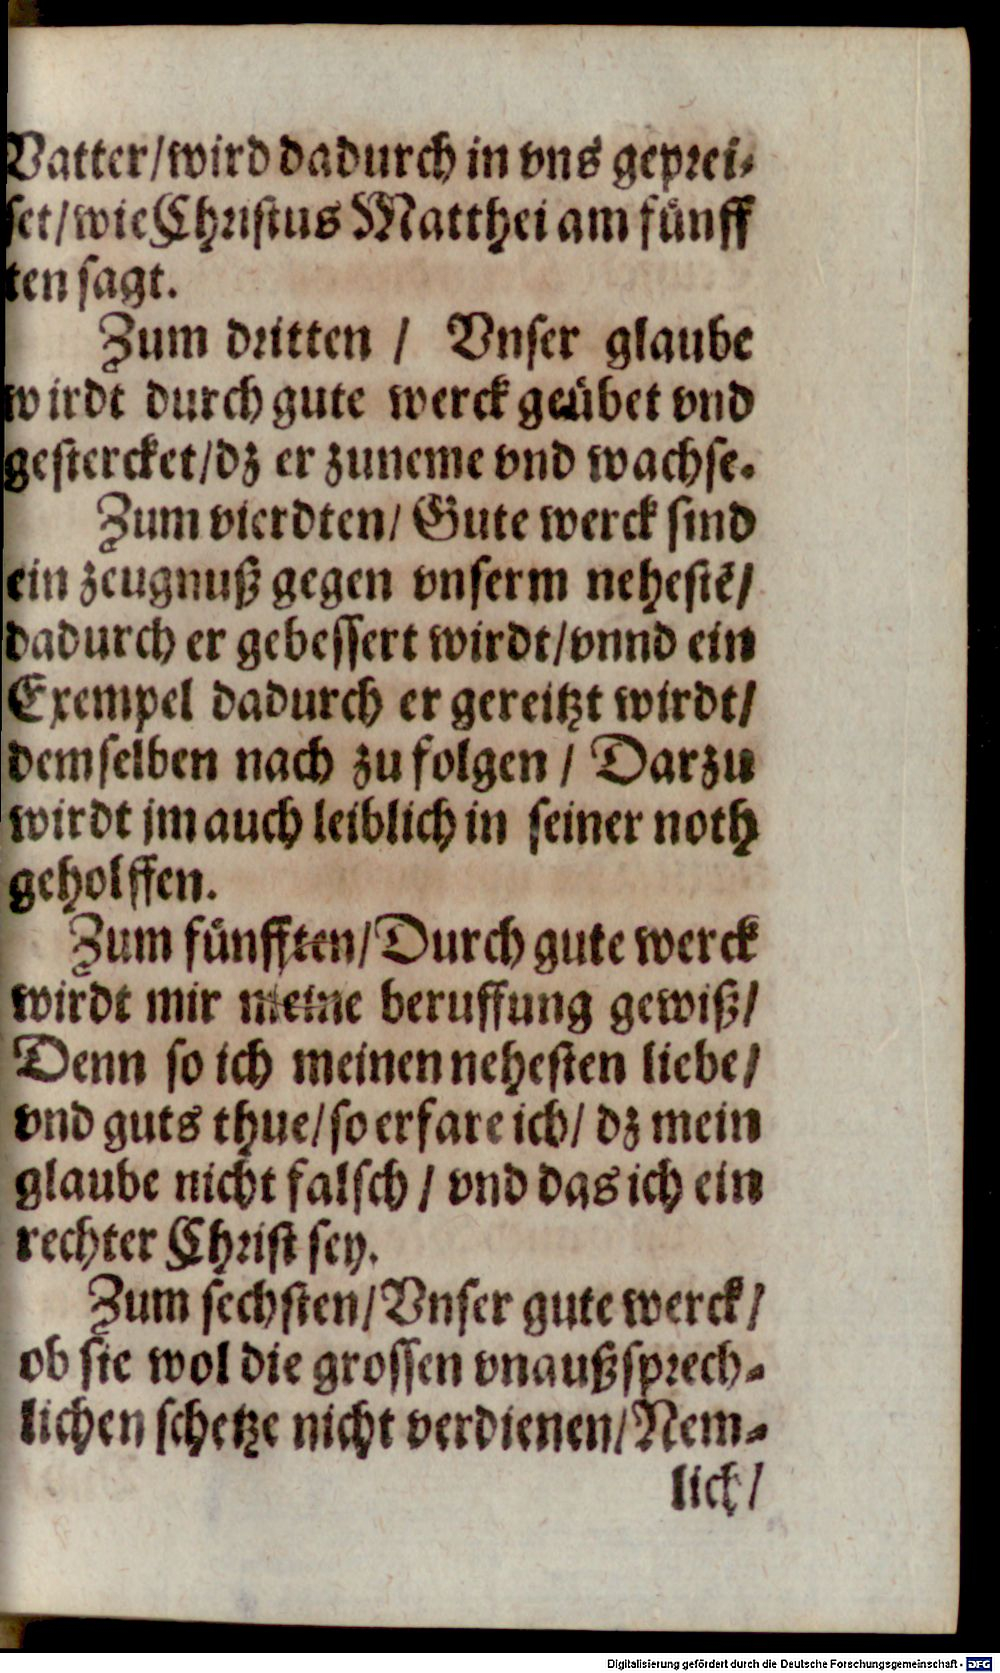 Vatter/wird dadurch in vns geprei-
set/wie Christus Matthei am fünff
ten sagt.
Zum dritten / Vnser glaube
wirdt durch gute werck geübet vnd
gestercket/dz er zuneme vnd wachse.
Zum vierdten/ Gute werck sind
ein zeugnuß gegen vnserm nehestē/
dadurch er gebessert wirdt/vnnd ein
Exempel dadurch er gereitzt wirdt/
demselben nach zu folgen / Darzu
wirdt jm auch leiblich in seiner noth
geholffen.
Zum fünfften/Durch gute werck
wirdt mir meine beruffung gewiß/
Denn so ich meinen nehesten liebe/
vnd guts thue/so erfare ich/ dz mein
glaube nicht falsch / vnd das ich ein
rechter Christ sey.
Zum sechsten/Vnser gute werck/
ob sie wol die grossen vnaußsprech-
lichen schetze nicht verdienen/Nem-
lich/
Digitalisierung gefördert durch die Deutsche Forschungsgemeinschaft - DFG